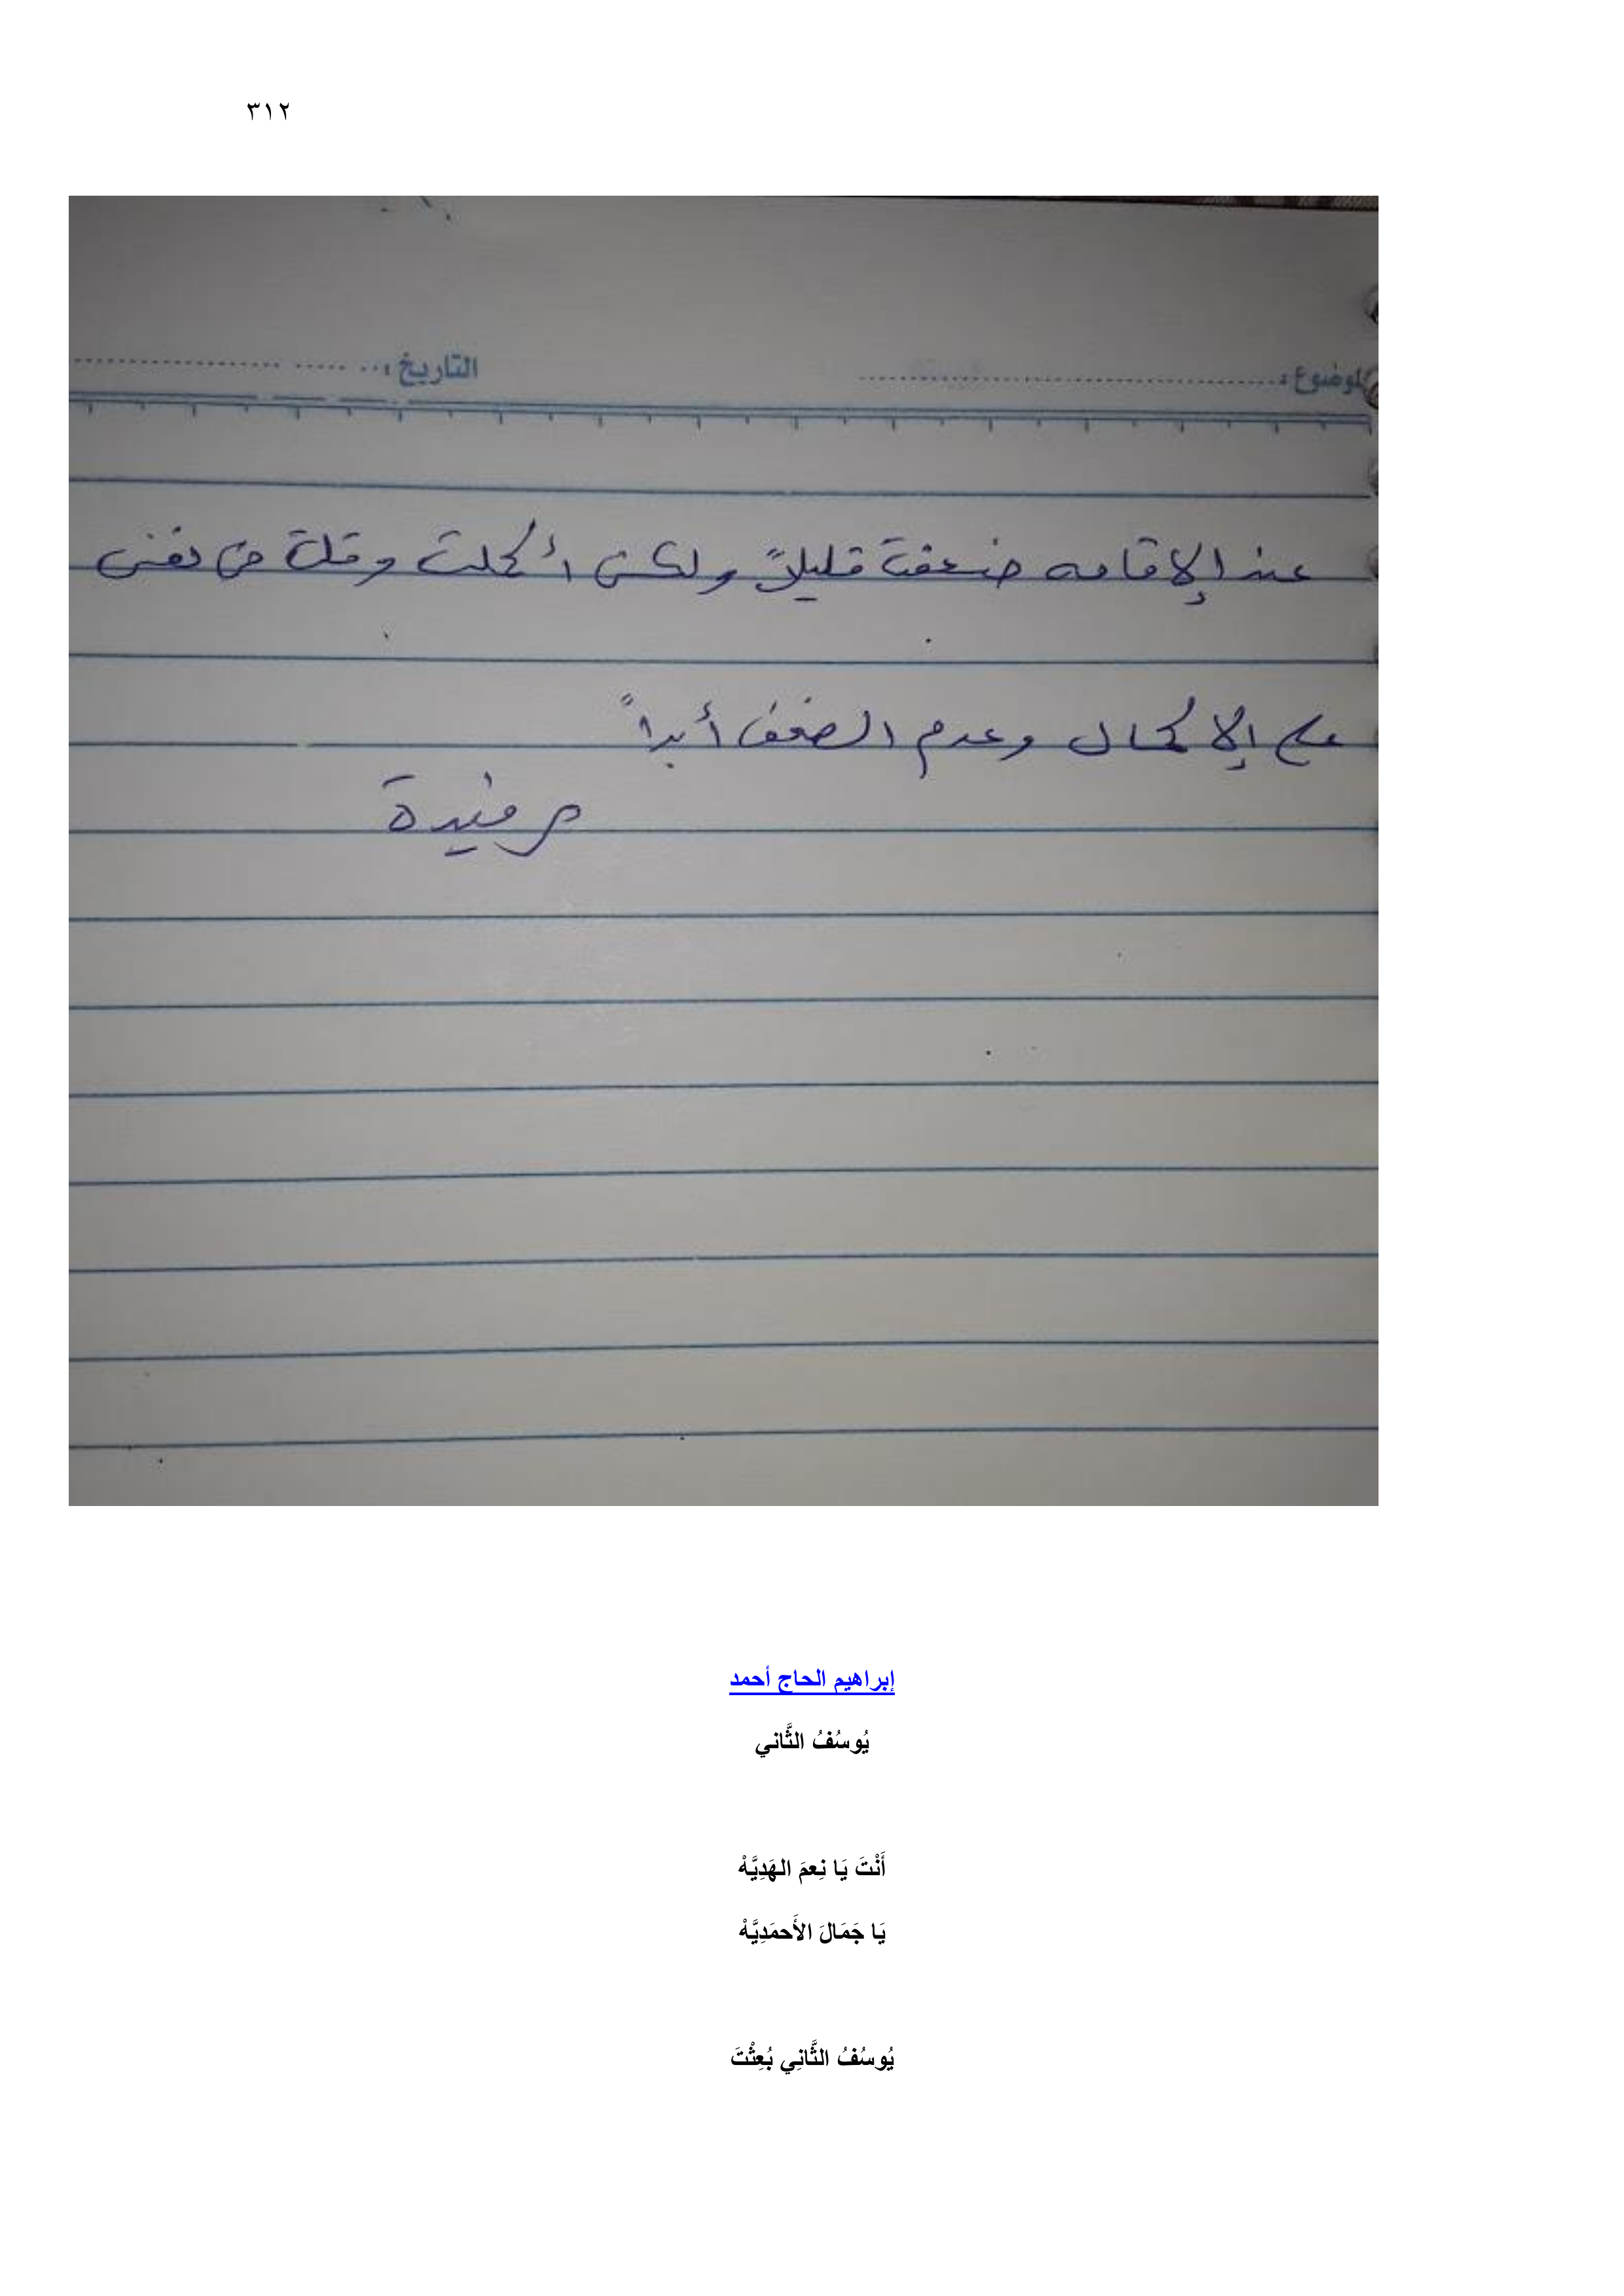 ٣١٢
الموضوع: التاريخ:
عند الإقامه ضعفت قليلاً ولكن أكملت وقلت في نفسي
على الإكمال وعدم الضعف أبداً
م فيدة
إبراهيم الحاج أحمد
يُوسُفُ الثَّاني
أَنْتَ يَا نِعمَ الهَدِيَّهْ
يَا جَمَالَ الأَحمَدِيَّهْ
يُوسُفُ الثَّانِي بُعِثْتَ